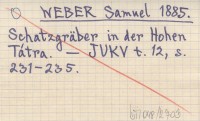 WEBER Samuel 1885.
Schatzgräber in der Hohen
Tátra. — JUKV t. 12, s.
231-235.